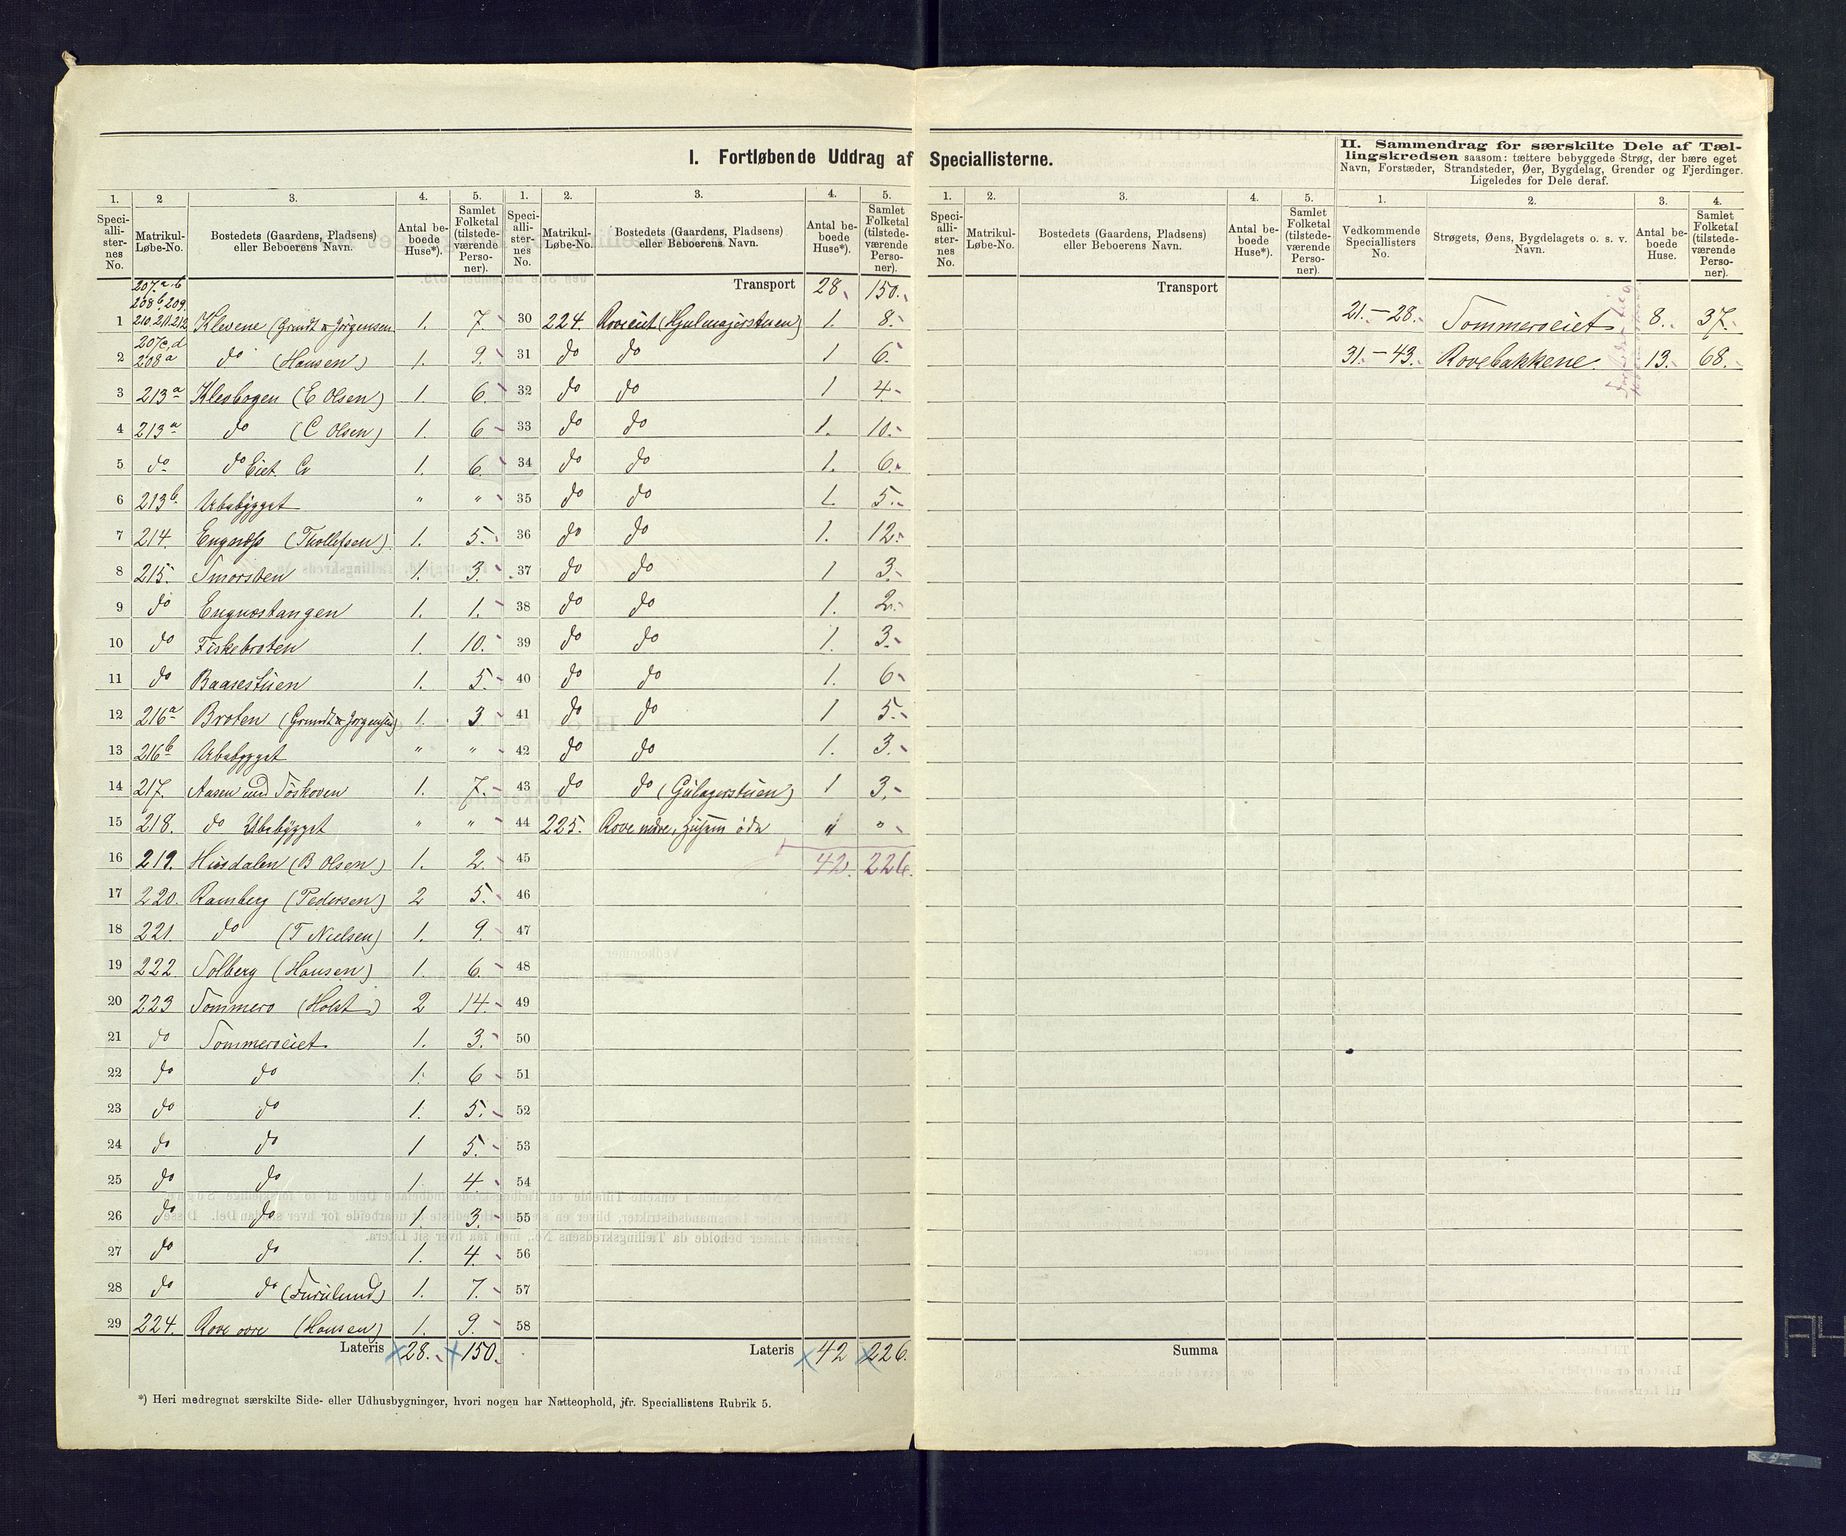 I. Fortløbende Uddrag af Speciallisterne.
II. Sammendrag for særskilte Dele af Tæl-
lingskredsen saasom: tættere bebyggede Strøg, der bære eget
Navn, Forstæder, Strandsteder, Øer, Bygdelag, Grender og Fjerdinger.
Ligeledes for Dele deraf.
1. 2 3. 4. 5.
Speci-alli-ster-nes No. Matrikul-Løbe-No. Bostedets (Gaardens, Pladsens) eller Beboerens Navn. Antal be-boede Huse*). Samlet Folketal (tilstede-værende Perso-ner).
207a.b
208b, 209
1 210, 211, 212 Klevene (Grundt & Jørgensen 1. 7.
207c,d
2 208a do (Hansen) 1. 9.
3 213a Klevbogen (E Olsen) 1. 6.
4 213a do (C Olsen) 1. 6
5 do do Eiet 1. 6.
6 213b. Ubebÿgget " "
7 214. Engnæss (Thollefsen) 1. 5.
8 215. Smorsten 1. 3.
9 do Engnæstangen 1. 1.
10 do Fiskebraten 1. 10.
11 do Baasestuen 1. 5.
12 216a Broten (Grundt & Jørgensen) 1. 3
13 216b Ubebygget " "
14 217. Aasen med Töskoven 1. 7.
15 218. do Ubebÿgget " "
16 219. Husdalen (B Olsen) 1. 2.
17 220. Ramberg (Pedersen) 2 5.
18 221. do (T Nielsen) 1. 9.
19 222. Solberg (Hansen) 1. 6.
20 223 Sommero (Holst) 2 14.
21 do Sommeroeiet 1. 3.
22 do do 1. 6
23 do do 1. 5.
24 do do 1 5.
25 do do 1 4
26 do do 1. 3.
27 do do 1. 4.
28 do do (Furulund) 1. 7.
29 224. Rove ovre (Hansen) 1. 9.
Lateris 28. 150.
1. 2. 3. 4. 5.
Speci-alli-ster-nes No. Matrikul-Løbe-No. Bostedets (Gaardens, Pladsens) eller Beboerens Navn. Antal be-boede Huse*). Samlet Folketal (tilstede-værende Perso-ner).
Transport 28. 150.
30 224. Roveeiet (Hjulmagerstuen) 1. 8.
31 do do 1 6.
32 do do 1 4.
33 do do 1. 10.
34 do do 1. 6.
35 do do 1. 5.
36 do do 1. 12.
37 do do 1 3.
38 do do 1. 2.
39 do do 1. 3.
40 do do 1. 6
41 do do 1 5.
42 do do 1. 3.
43 do do (Gülagerstuen) 1 3.
44 225. Rove nedre, øde " "
45 42. 226.
46
47
48
49
50
51
52
53
54
55
56
57
58
Lateris 42 226.
*) Heri medregnet særskilte Side- eller Udhusbygninger, hvori nogen har Natteophold, jfr. Speciallistens Rubrik 5.
1. 2. 3. 4. 5.
Speci-alli-ster-nes No. Matrikul-Løbe-No. Bostedets (Gaardens, Pladsens) eller Beboerens Navn. Antal be-boede Huse*). Samlet Folketal (tilstede-værende Perso-ner).
Transport
Summa
1. 2. 3. 4.
Vedkommende Speciallisters No. Strøgets, Øens, Bygdelagets o. s. v. Navn. Antal be-boede Huse. Samlet Folketal (tilstede-værende Perso-ner).
21.-28. Sommeroeiet 8. 37.
31.-43. Rovebakkene. 13. 68.